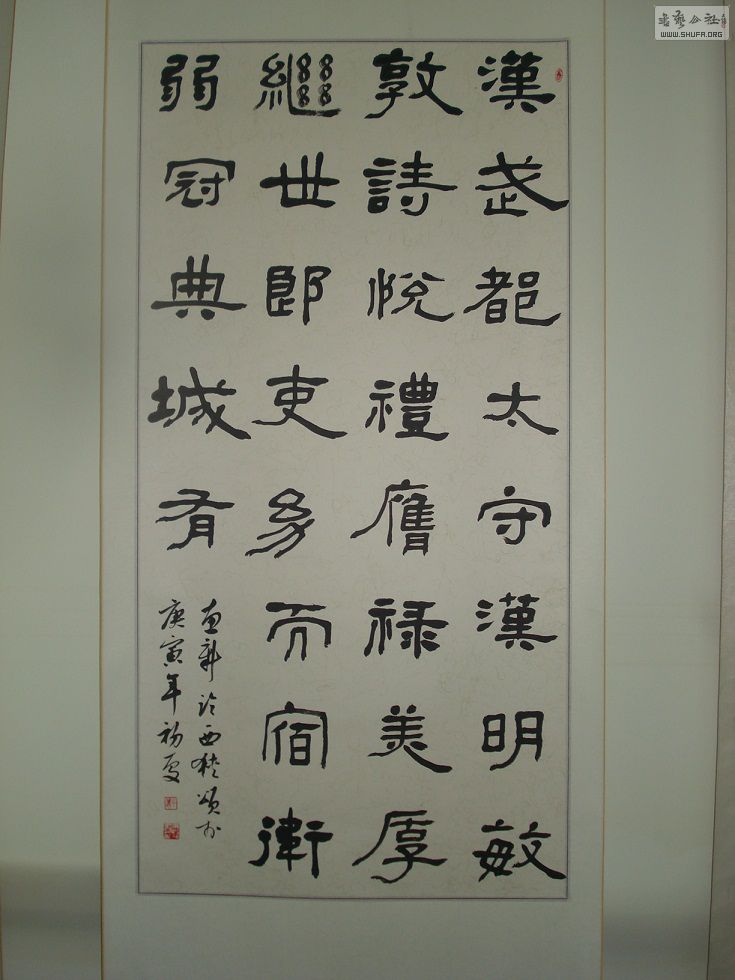 漢武都太守漢明敏
敦詩悅禮膺禄美厚
繼世郎吏幼而宿衛
弱冠典城有
新臨西狹頌於
庚寅年初夏
書藝公社
WWW.SHUFA.ORG